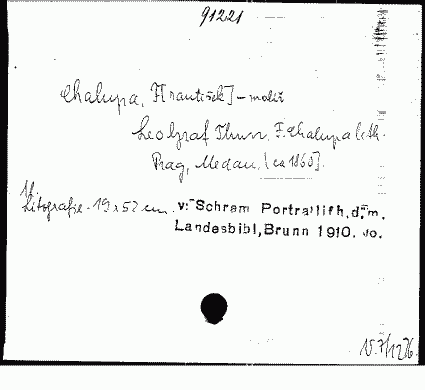 91221
Chalupa, F[rantišek] - malíř
Leo Graf Thun. F. Chalupa lith.
Prag, Medau, [ca 1860].
1 l.
Litografie - 19 x 52 cm. v: Schram Portraitlith. d. m.
Landesbibl, Brunn 1910. Jo.